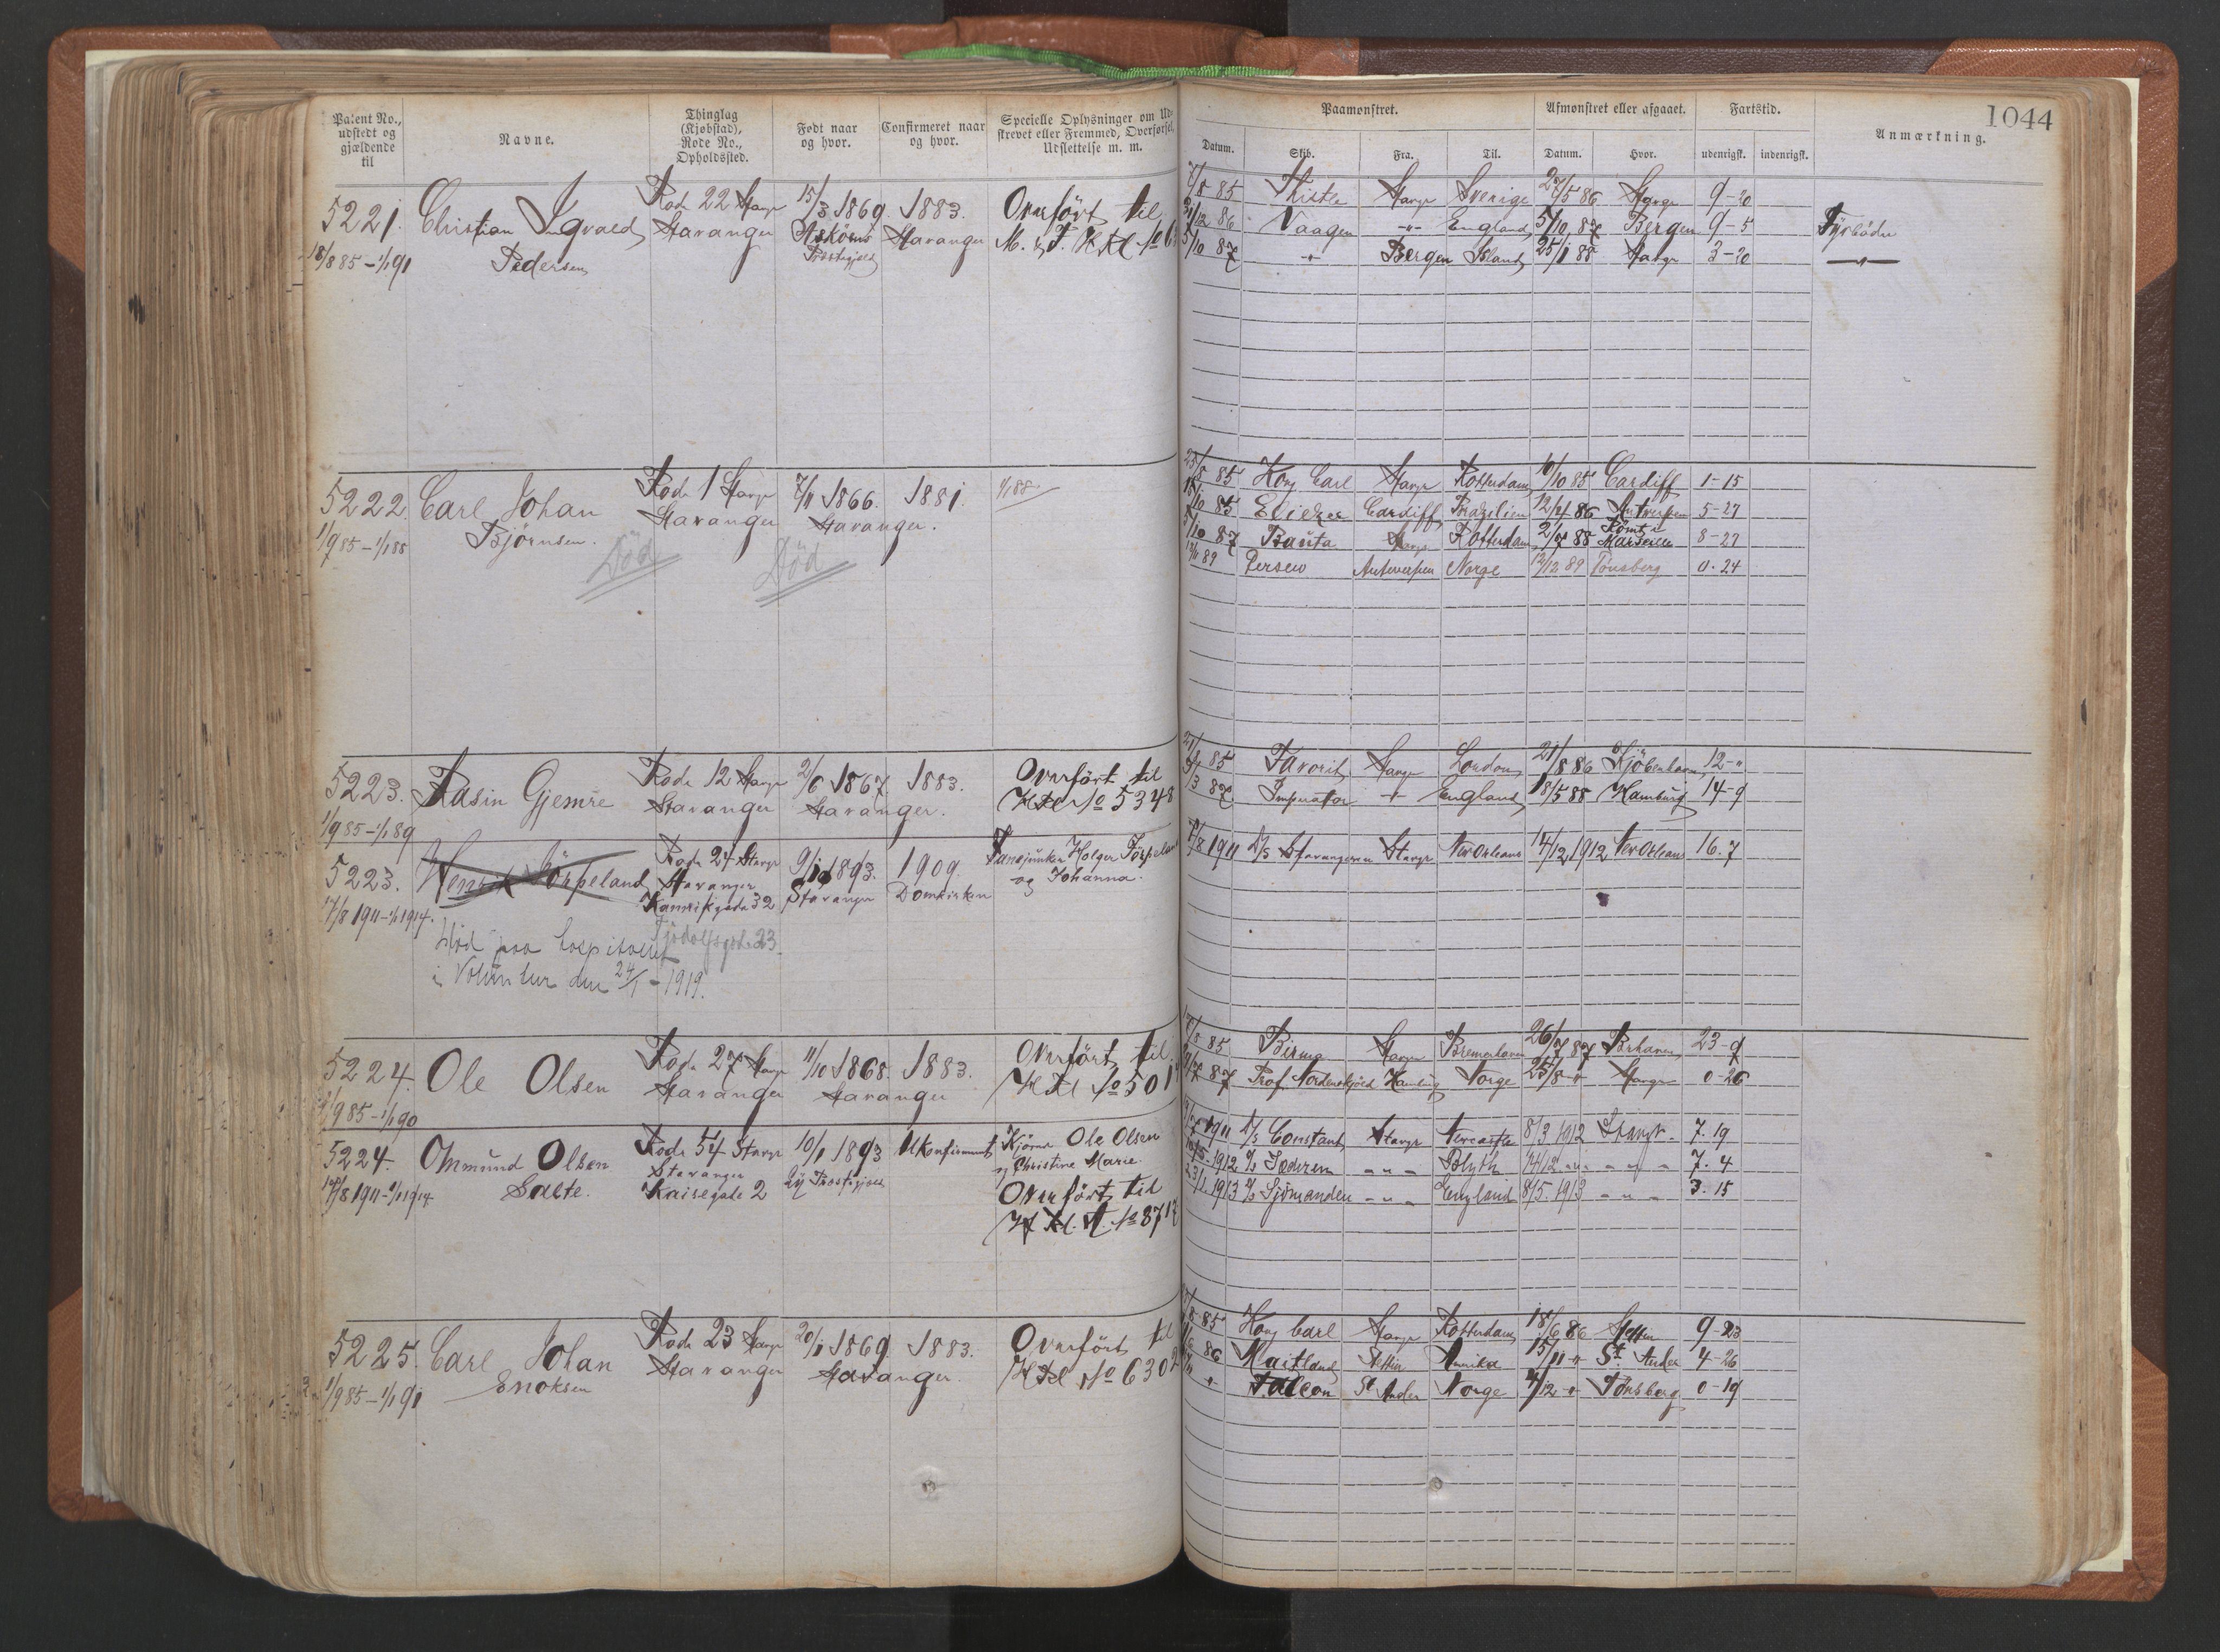 Patent No., udstedt og gjældende til
Navne.
Thinglag (Kjøbstad), Rode No., Opholdssted.
Født naar og hvor.
Confirmeret naar og hvor.
Specielle Oplysninger om Ud-
skrevet eller Fremmed, Overførsel,
Udslettelse m. m.
Paamønstret.
Afmønstret eller afgaaet.
Fartstid.
1044
Anmærkning.
Datum. Skib. Fra. Til. Datum. Hvor. udenrigsk. indenrigsk.
5221. Christian Ingvald Rode 22 Stavgr 15/3 1869. 1883. Overført til
18/8 85 – 1/1 91 Pedersen Stavanger Askøens Stavanger M. & F.
Præstegjeld
7/8 85 Thistle Stavgr Sverige 27/5 86 Stavgr 9-20
31/12 86 Vaagen -"- England 5/10 87 Bergen 9-5 Fyrbøder
5/10 87 -"- Bergen Island 25/1 88 Stavgr 3-20 -"-
5222. Carl Johan Rode 1 Stavgr 7/11 1866. 1881. 1/1 88
1/9 85 – 1/1 88 Bjørnsen. Stavanger Stavanger.
Død Død
25/8 85 Kong Carl Stavgr Rotterdam 10/10 85 Cardiff 1-15
10 85 Eliezer Cardiff Brazilien 12/4 86 Antwerpen 5-27
5/10 87 Bauta Stavgr Rotterdam 2/7 88 Rømt Marseille 8-27
89 Persew Antwerpen Norge 12/12 89 Tønsberg 0-24
5223. Rasin Gjemre Rode 12 Stavgr 2/6 1867. 1883. Overført til
1/9 85 – 1/1 89 Stavanger Stavanger. No 5348
85 Favorit Stavgr London 21/8 86 Kjøbenhavn 12-"
3 87 Imperator -"- England 18/5 88 Hamburg 14-9
5223. Henrik Tørpeland Rode 24 Stavgr 9/10 1893. 1909. Holger Tørpeland
17/8 1911 – 1/1 1914. Stavanger Stavanger Domkirken og Johanna.
32
Tjodolfsgate 23.
Død paa hospitalet
i den 24/1 – 1919.
/8 1911 S/S Stavangeren Stavgr New Orleans 14/12 1912 New Orleans 16.7
5224. Ole Olsen Rode 27 Stavgr 11/10 1868. 1883. Overført til
/9 85 – 1/1 90 Stavanger Stavanger No 501
/8 85 Birma Stavgr Bremerhaven 26/7 87 Brhaven 23-9
/7 87 Prof Nordenskjöld Hamburg Norge 25/8 -"- Stavgr 0-26
5224. Ommund Olsen Rode 54 Stavgr 10/1 1893 Ukonfirmert Ole Olsen
17/8 1911 – 1/1 1914 Salte. Stavanger Præstegjeld og Christine Marie.
Kaisegate 2 Overført til
No 871
1911 S/S Constant Stavgr Newcastle 8/3 1912 Stavgr. 7.19
1912 S/S Jæderen -"- Blyth 14/12 -"- -"- 7.4
1913 S/S Sjømanden -"- England 8/5 1913 -"- 3.15
5225. Carl Johan Rode 23 Stavgr 20/1 1869. 1883. Overført til
1/9 85 – 1/1 91 Enoksen Stavanger Stavanger. No 630
/8 85 Kong Carl Stavgr Rotterdam 18/6 86 Stettin 9-23
86 Maitland Stettin Amerika 15/11 -"- St. Ander 4-26
-"- Falcon St Ander Norge 4/12 -"- Tønsberg 0-19